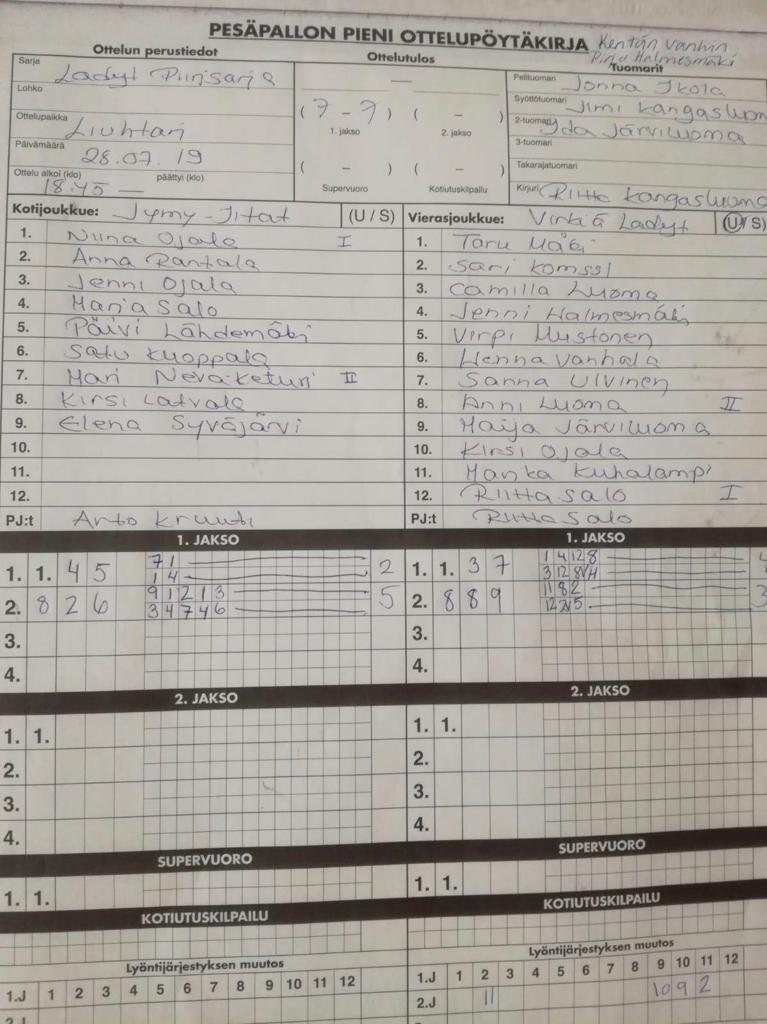 PESÄPALLON PIENI OTTELUPÖYTÄKIRJA
Kentän vanhin
Pirjo Halmesmäki
Ottelun perustiedot
Sarja Ladyt Piirisarja
Lohko
Ottelupaikka Liuhtari
Päivämäärä 28.07.19
Ottelu alkoi (klo) päättyi (klo)
18.45 —
Ottelutulos
—
(7 - 7) ( - )
1. jakso 2. jakso
( - ) ( - )
Supervuoro Kotiutuskilpailu
Tuomarit
Pelituomari Jonna Ikola
Syöttötuomari Jimi Kangasluom
2-tuomari Iida Järviluoma
3-tuomari
Takarajatuomari
Kirjuri Riitta Kangasluoma
Kotijoukkue: Jymy-Jitat (U / S)
1. Niina Ojala I
2. Anna Rantala
3. Jenni Ojala
4. Marja Salo
5. Päivi Lähdemäki
6. Satu Kuoppala
7. Mari Neva-Keturi II
8. Kirsi Latvala
9. Elena Syväjärvi
10.
11.
12.
PJ:t Arto Kruuti
Vierasjoukkue: Virkiä Ladyt (U / S)
1. Taru Mäki
2. Sari Komssi
3. Camilla Luoma
4. Jenni Halmesmäki
5. Virpi Mustonen
6. Henna Vanhala
7. Sanna Ulvinen
8. Anni Luoma II
9. Maija Järviluoma
10. Kirsi Ojala
11. Marika Kuhalampi
12. Riitta Salo I
PJ:t Riitta Salo
1. JAKSO
1. 1. 4 5 7 1 2
1 4
2. 8 2 6 9 1 2 1 3 5
3 4 7 4 6
3.
4.
1. JAKSO
1. 1. 3 7 1 4 12 8 4
3 12 8
2. 8 8 9 11 8 2 3
3.
4.
2. JAKSO
1. 1.
2.
3.
4.
2. JAKSO
1. 1.
2.
3.
4.
SUPERVUORO
1. 1.
SUPERVUORO
1. 1.
KOTIUTUSKILPAILU
KOTIUTUSKILPAILU
Lyöntijärjestyksen muutos
1.J 1 2 3 4 5 6 7 8 9 10 11 12
2.J
Lyöntijärjestyksen muutos
1.J 1 2 3 4 5 6 7 8 9 10 11 12
2.J 11 10 9 2